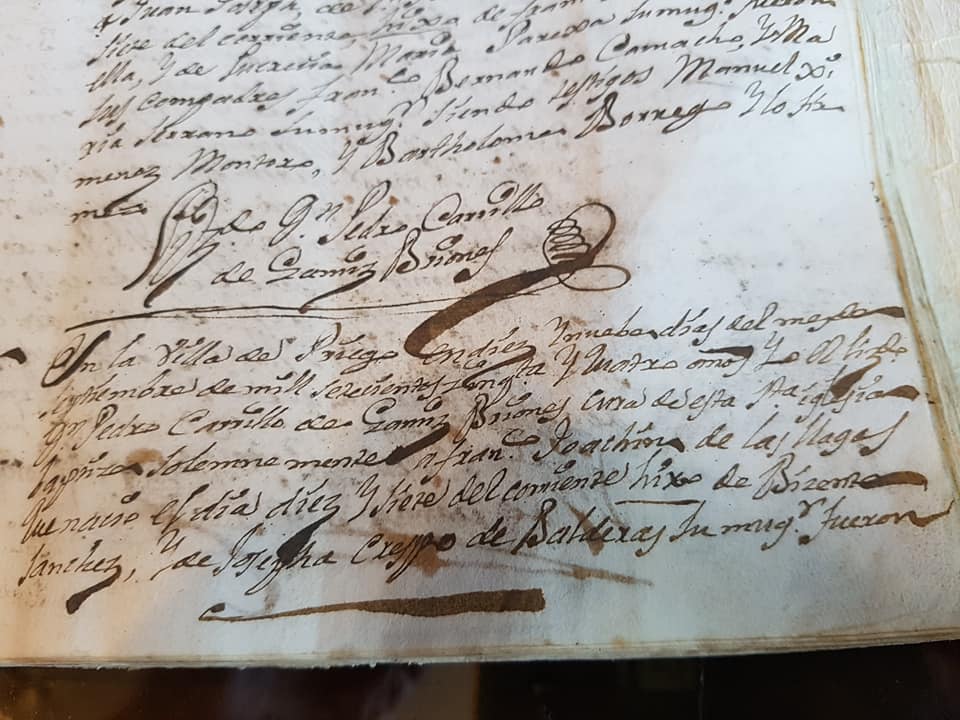 Juan Joseph, de
siete del corriente, hixo de fran
illa, y de Lucrezia Maria Pareja su mug.r fueron
sus compadres fran.co Bernando Camacho, y Ma
ria serrano su mug.r siendo testigos Manuel Xi
menez Montoro, y Bartholome Borrego y lo fir
me
L.do D.n Pedro Carrillo
de Gamiz Briones
En la Villa de Priego en diez y nuebe dias del mes de
septiembre de mill setecientos cinq.ta y quatro años yo el liz.do
D.n Pedro Carrillo de Gamiz Briones cura de esta s.ta iglesia
baptize solemnemente a fran.co Joachin de las llagas
que nacio el dia diez y siete del corriente hixo de Bizente
sanchez, y de Josepha Crespo de Balderas su mug.r fueron